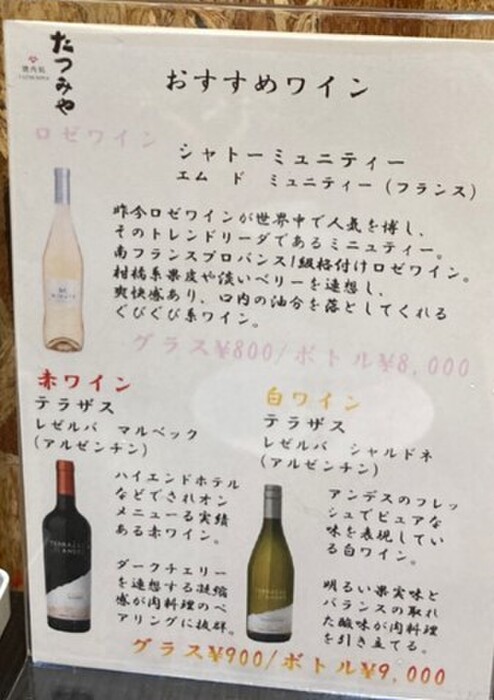 たつみや
焼肉処
おすすめワイン
ロゼワイン
シャトーミュニティー
エム ド ミュニティー(フランス)
昨今ロゼワインが世界中で人気を博し、
そのトレンドリーダであるミニュティー。
南フランスプロバンス1級格付けロゼワイン。
柑橘系果皮や淡いベリーを連想し、
爽快感あり、口内の油分を落としてくれる
ぐびぐび系ワイン。
グラス¥800/ボトル¥8,000
赤ワイン
テラザス
レゼルバ マルベック
(アルゼンチン)
ハイエンドホテル
などでされオン
メニューる実績
ある赤ワイン。
ダークチェリー
を連想する凝縮
感が肉料理のペ
アリングに抜群。
白ワイン
テラザス
レゼルバ シャルドネ
(アルゼンチン)
アンデスのフレッ
シュでピュアな
味を表現してい
る白ワイン。
明るい果実味と
バランスの取れ
た酸味が肉料理
を引き立てる。
グラス¥900/ボトル¥9,000